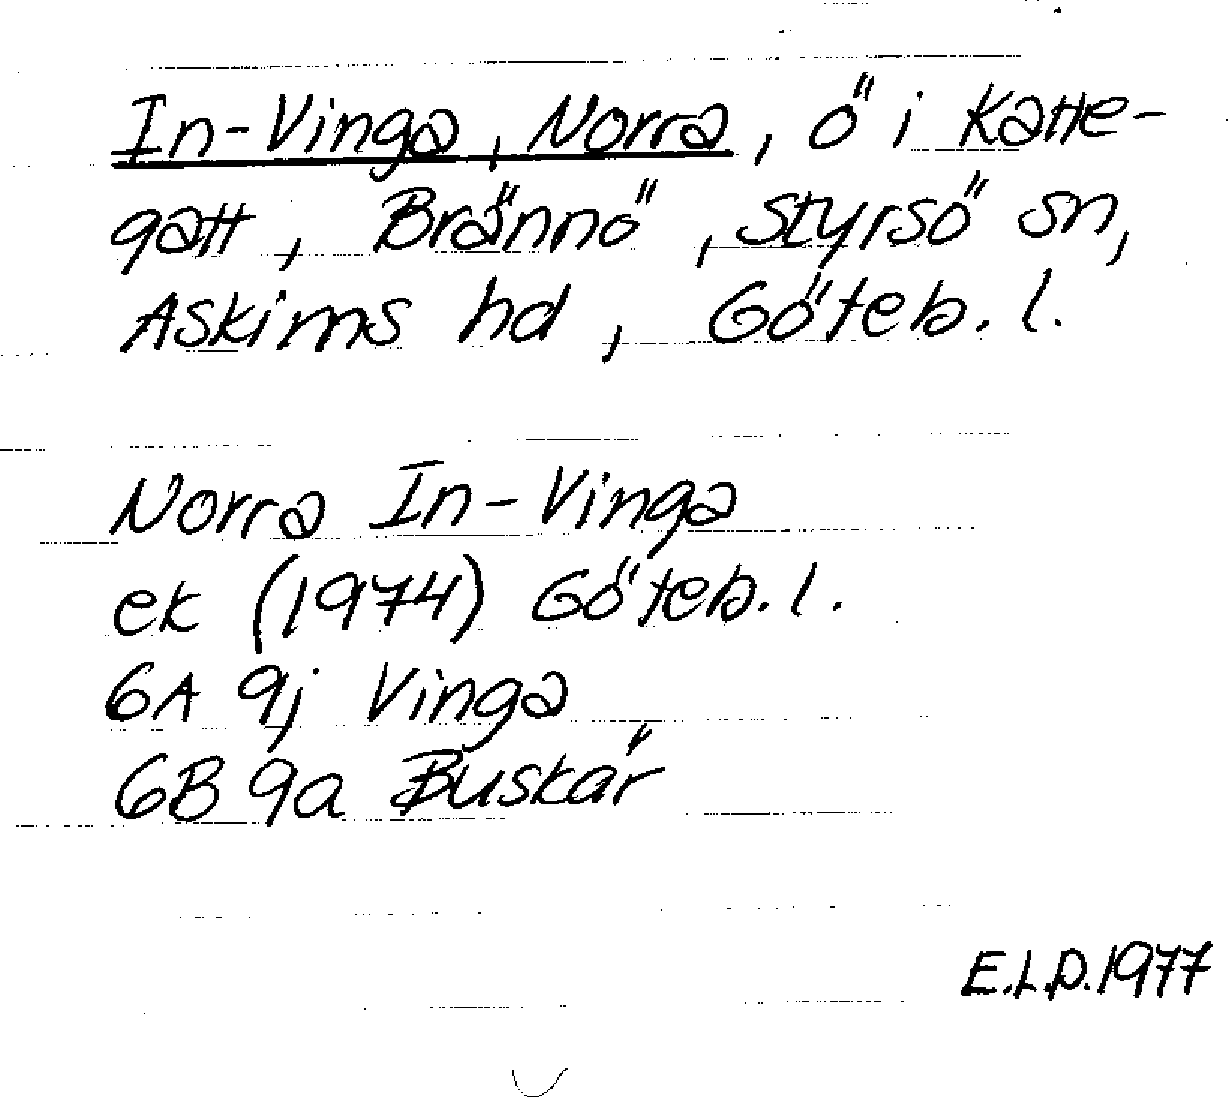 In-Vinga, Norra, ö i Katte-
gatt, Brännö, Styrsö sn,
Askims hd, Göteb. l.
Norra In-Vinga
ek (1974) Göteb. l.
6A 9j Vinga
6B 9a Buskär
E.L.D. 1977